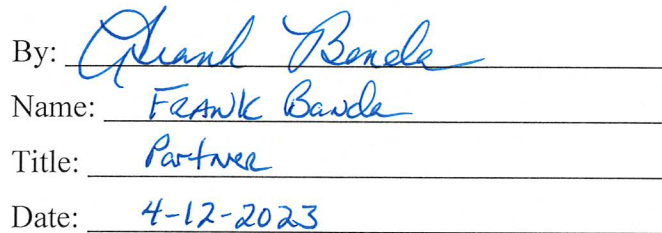 By: Frank Banda
Name: FRANK Banda
Title: Partner
Date: 4-12-2023